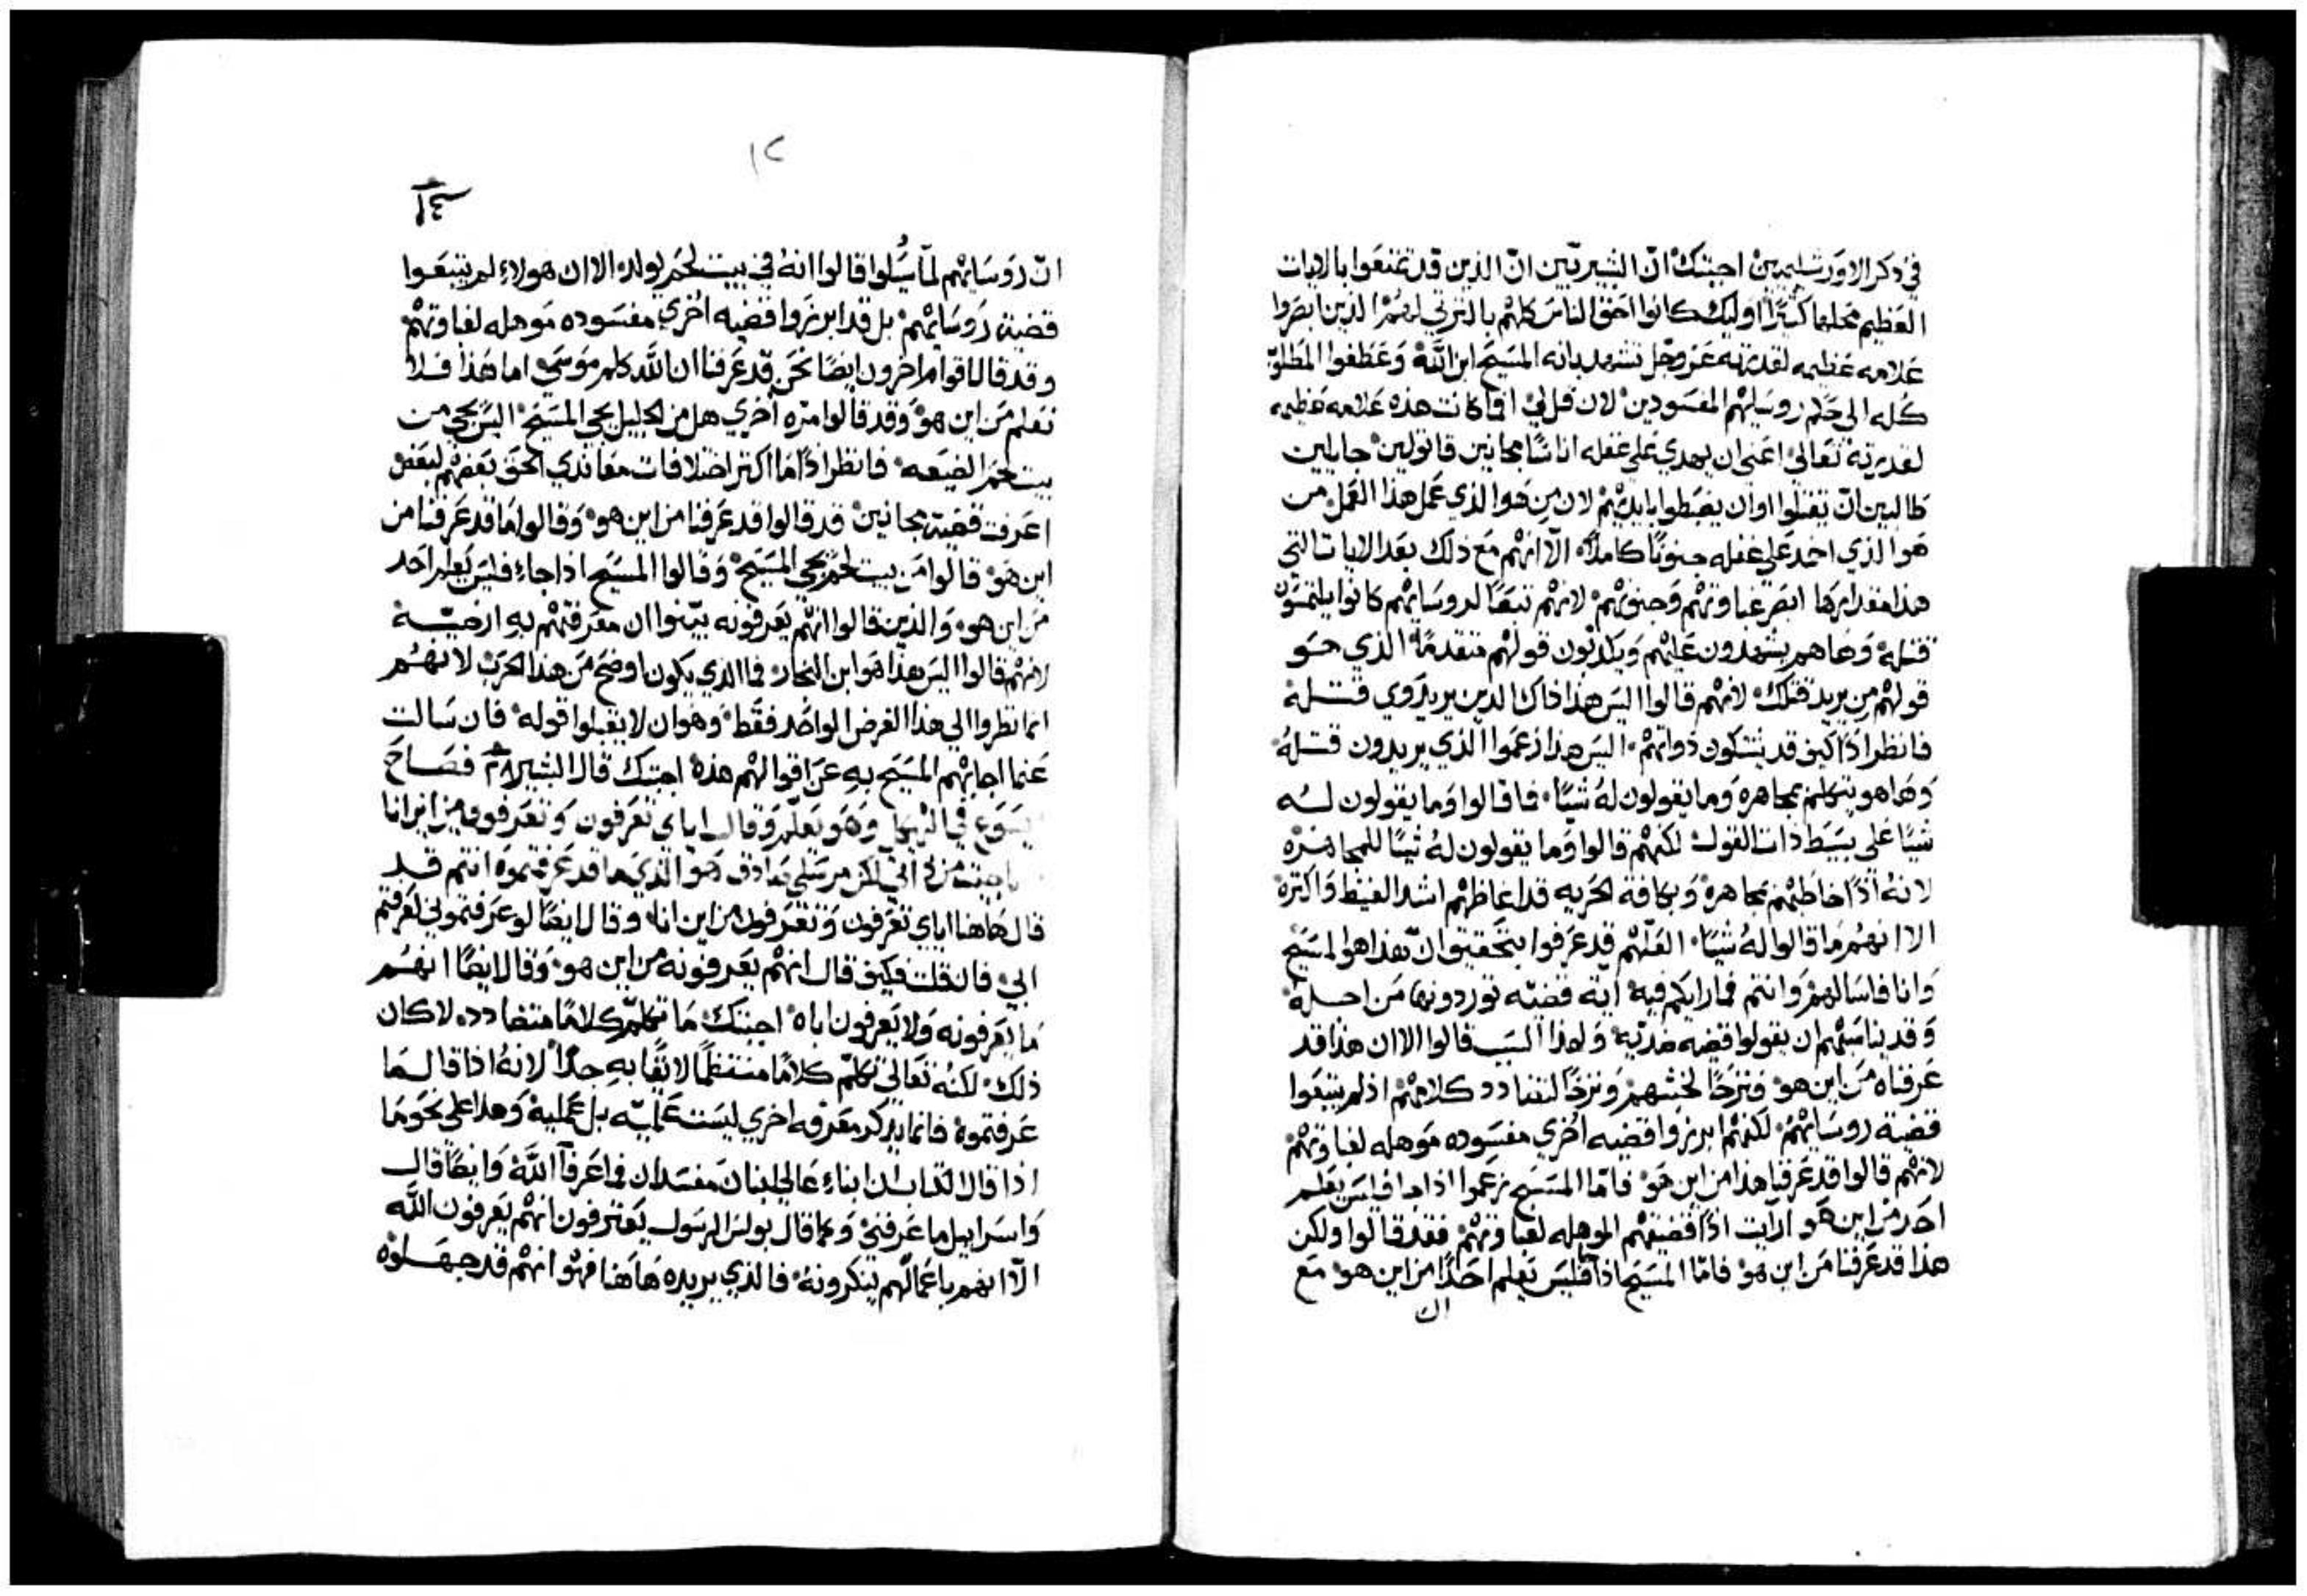 في ذكر الاورشليميين اجبتك ان البشيريبين ان الذين قد تمتعوا بالايات
العظيم محلها كثيرًا اوليك كانوا احق الناس كلهم بالترتي لهم الذين ابصروا
علامه عظيمه لقدرته عز وجل تشهد بانه المسيح ابن الله وعطفوا المطلوب
كله الى حكم روسايهم المفسودين لان قل لي افما كانت هذه علامه عظيمه
لقدرته تعالى اعني ان يهدي على غفله اناسًا مجانين قاتولين جايلين
طالبين ان يقتلوا او ان يضبطوا بايديهم لان من هوا الذي عمل هذا العمل من
هوا الذي اخمد على غفله جنونًا كاملاً الا انهم مع ذلك بعد الايات التي
هذا مقدارها ابصر غباوتهم وجنونهم لانهم تبعًا لروسايهم كانوا يلتمسون
قتله وها هم يشهدون عليهم ويكذبون قولهم متقدمًا الذي هو
قولهم من يريد قتلك لانهم قالوا اليس هذا ذاك الدين يريد ذوي قتله
فانظر اذًا كيف قد يشكون ذواتهم اليس هذا زعموا الذي يريدون قتله
وها هو يتكلم مجاهره وما يقولون له شيًا فما قالوا وما يقولون له
شيًا على بسيط ذات القول لكنهم قالوا وما يقولون له شيًا للمجاهره
لانه اذًا خاطبهم مجاهرة وبكافة الحريه قد اغاظهم اشد الغيظ واكثره
الا انهم ما قالوا له شيًا العلهم قد عرفوا بتحقيق ان هذا هوا المسيح
وانا فاسالهم وانتم فما رايكم فيه اية قضيه توردونها من اجله
وقد يناسبهم ان يقولوا قضية ضديه ولهذا السبب قالوا الا ان هذا قد
عرفناه من اين هو فترحًا لخبثهم وترحًا لتضادد كلامهم اذ لم يتبعوا
قضية روسايهم لكنهم ابرزوا قضيه اخري مفسوده موهله لغباوتهم
لانهم قالوا قد عرفنا هذا من اين هو فاما المسيح زعموا اذا جا فليس يعلم
احد من اين هو ارايت اذًا قضيتهم الموهله لغباوتهم فقد قالوا ولكن
هذا قد عرفنا من اين هو فاما المسيح اذا جا فليس يعلم احدًا من اين هو مع
ان
١٢
١٤
ان روسايهم لما سُيلوا قالوا انه في بيت لحم يولد الا ان هولاء لم يتبعوا
قضية روسايهم بل قد ابرزوا قضيه اخري مفسوده موهله لغباوتهم
وقد قالا اقوام اخرون ايضًا نحن قد عرفنا ان الله كلم موسي اما هذا فلا
نعلم من اين هو وقد قالوا مره اخري هل من الجليل يجي المسيح اليس يجي من
بيت لحم الضيعه فانظر اذًا ما اكثر اختلافات معاندي الحق بعضهم لبعض
اعرفت قضية مجانين قد قالوا قد عرفنا من اين هو وقالوا ما قد عرفنا من
اين هو قالوا من بيت لحم يجي المسيح وقالوا المسيح اذا جاء فليس يعلم احد
من اين هو والذين قالوا انهم يعرفونه بينوا ان معرفتهم به ارضية
لانهم قالوا اليس هذا هوا ابن النجار فما الذي يكون اوضح من هذا الحرب لانهم
انما نظروا الي هذا الغرض الواحد فقط وهو ان لا يقبلوا قوله فان سالت
عما اجابهم المسيح به عن اقوالهم هذه اجبتك قال البشير ٢٨ فصاح
يسوع في الهيكل وهو يعلم وقال اياي تعرفون وتعرفون من اين انا
ما جيت من ذاتي لكن مرسلي صادق هو الذي ما قد عرفتموه انتم قد
قال هاهنا اياي تعرفون وتعرفون من اين انا وقال ايضًا لو عرفتموني لعرفتم
ابي فان قلت فكيف قال انهم يعرفونه من اين هو وقال ايضًا انهم
ما يعرفونه ولا يعرفون اباه اجبتك ما تكلم كلامًا متضادد لا كان
ذلك لكنه تعالي تكلم كلامًا منتظمًا لايقًا به جدًا لانه اذا قال ما
عرفتموه فانما يذكر معرفه اخري ليست علميه بل عمليه وهذا على نحو ما
اذا قال الكتاب ان ابناء عالي ابنان مفسدان فما عرفا الله وايضًا قال
واسراييل ما عرفني وكما قال بولس الرسول يعترفون انهم يعرفون الله
الا انهم باعمالهم ينكرونه فالذي يريده هاهنا فهوا انهم قد جهلوه